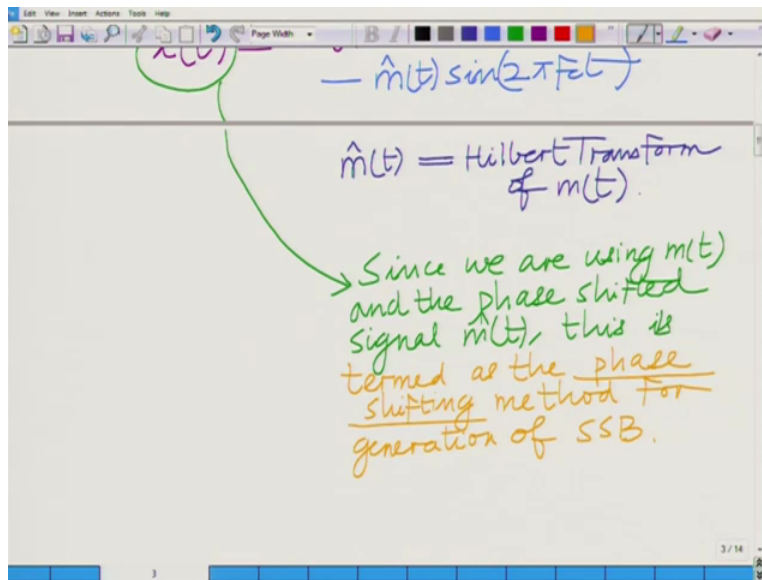 Edit View Insert Actions Tools Help
Page Width
x(t) =
− m̂(t) sin(2πFct)
m̂(t) = Hilbert Transform
of m(t).
Since we are using m(t)
and the phase shifted
signal m̂(t), this is
termed as the phase
shifting method for
generation of SSB.
3 / 14
3